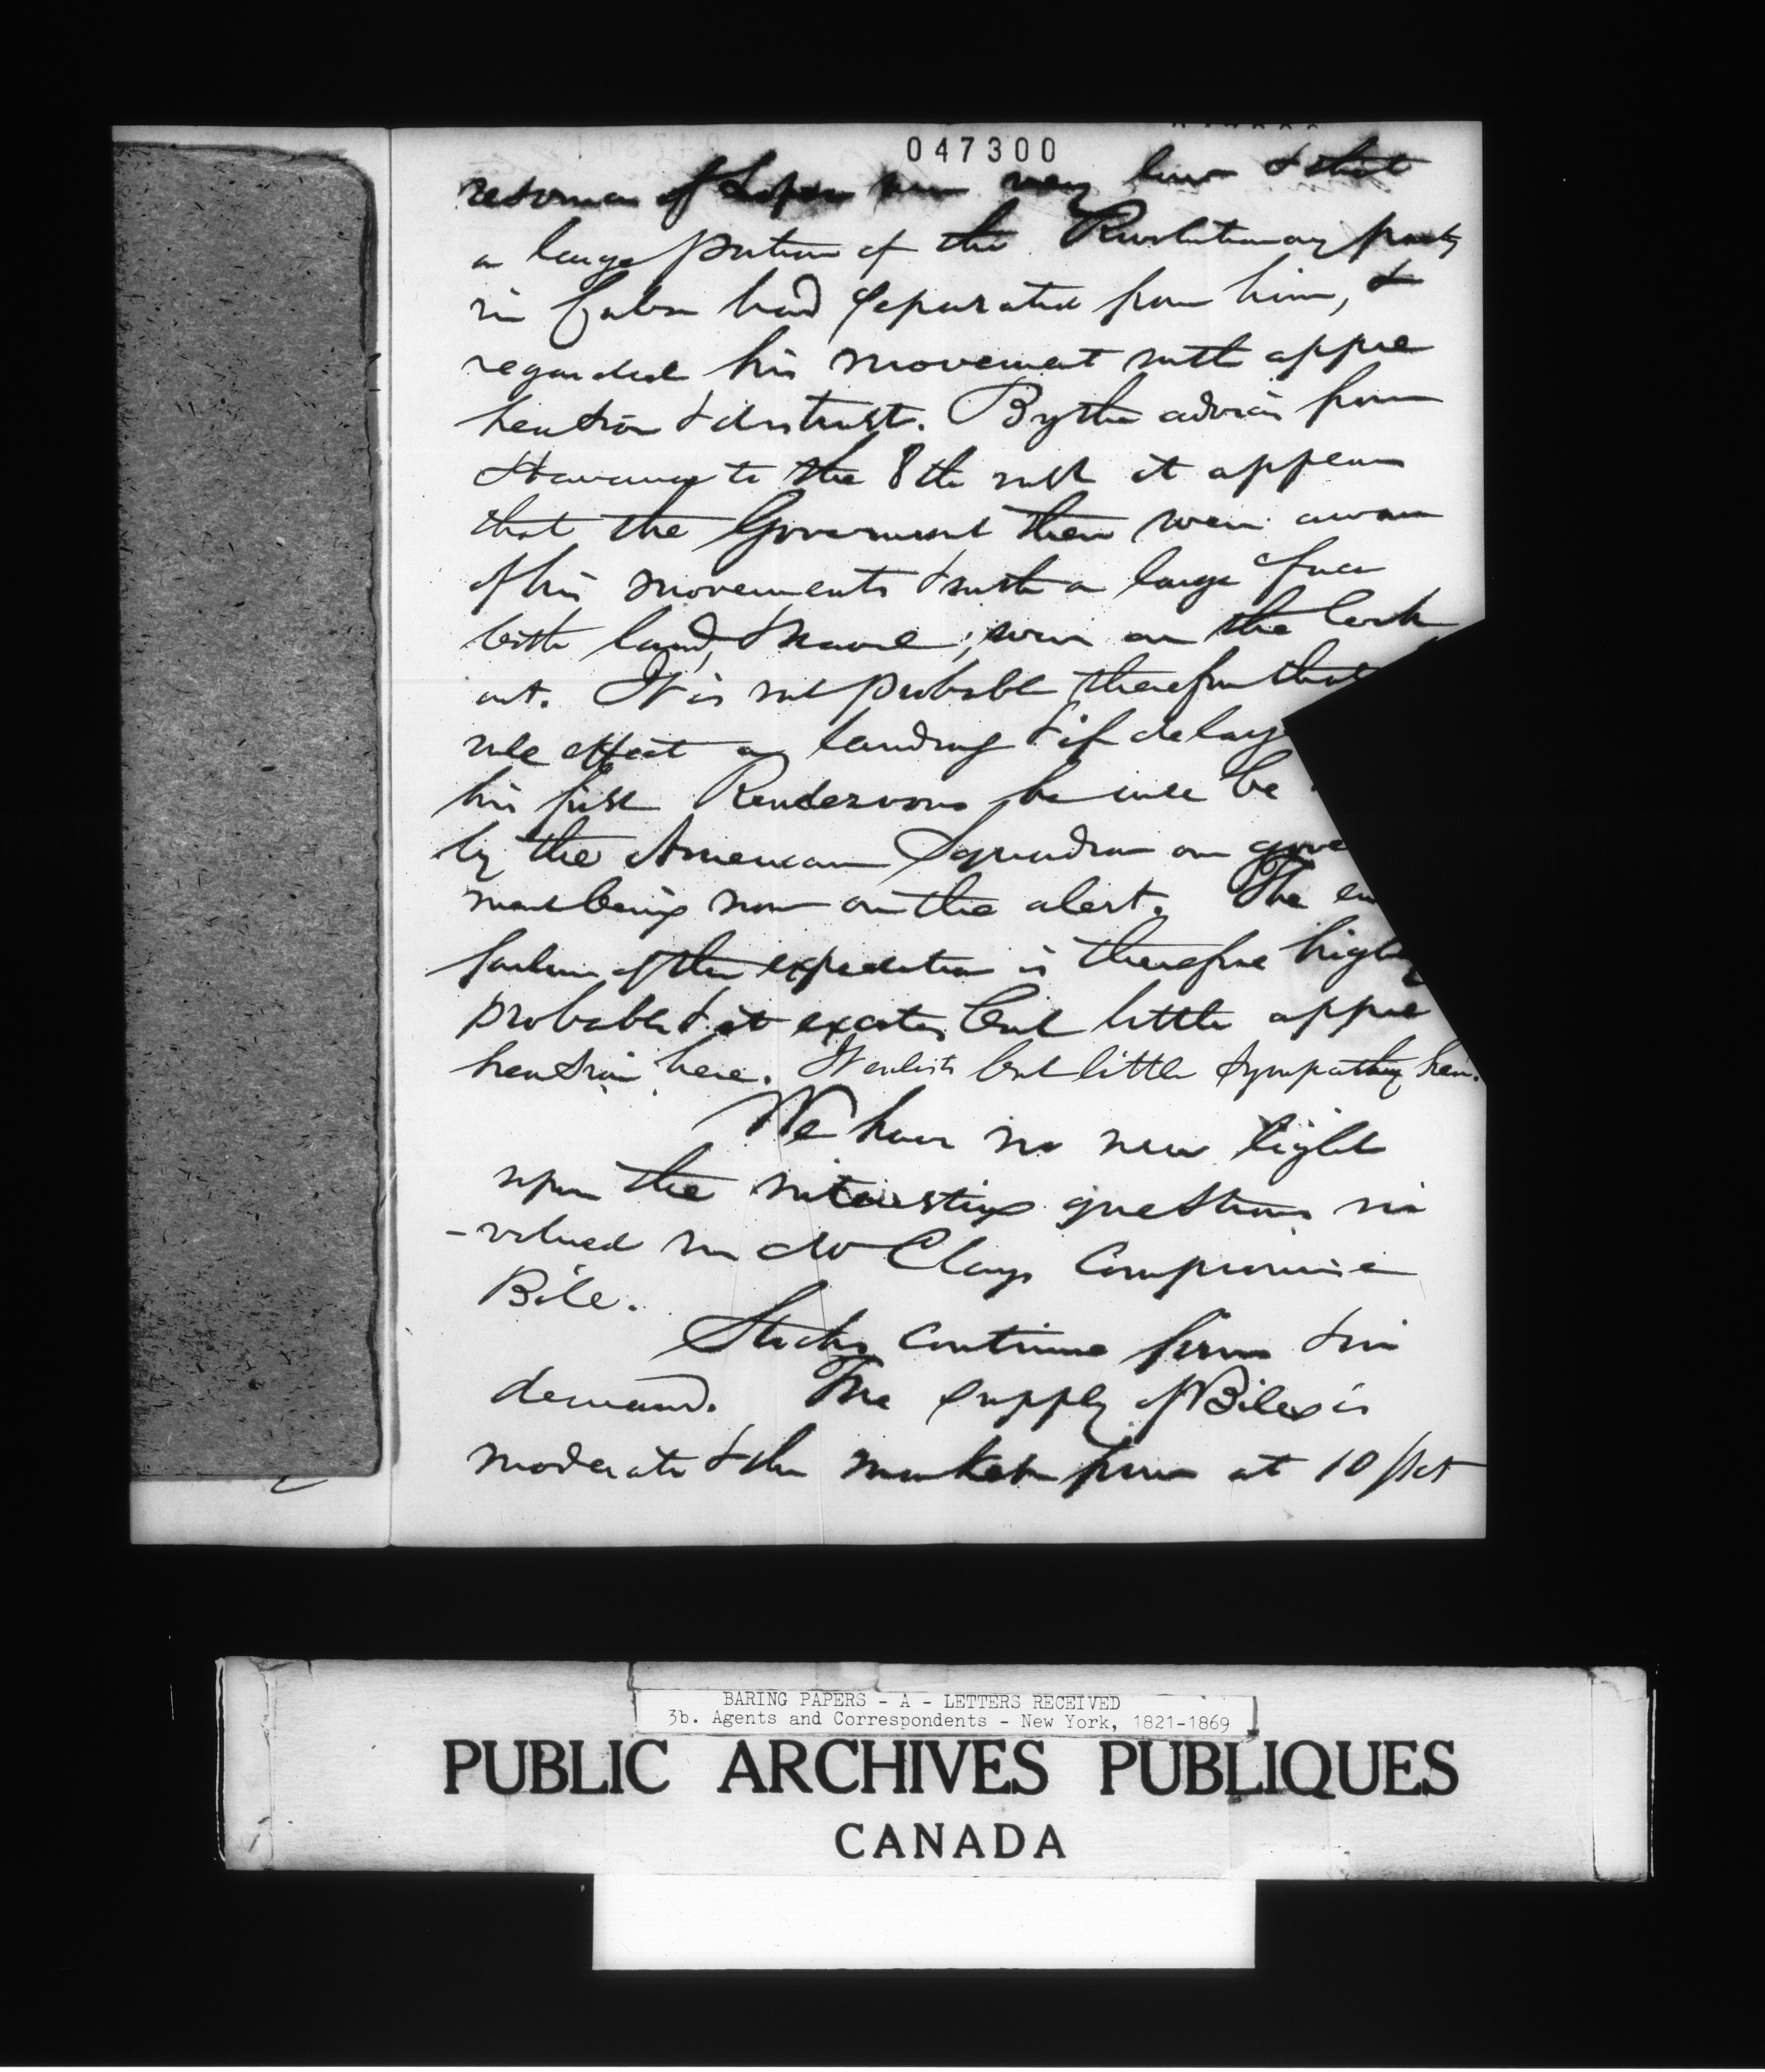 047300
resources of Lopez were very low & that
a large portion of the Revolutionary party
in Cuba had separated from him, &
regarded his movement with appre
hension & distrust. By the advices from
Havana to the 8th inst it appears
that the Government there were aware
of his movements & with a large force
both land & naval, were on the look
out. It is not probable therefore that
will effect a landing & if delay
his first Rendezvous he will be
by the American Squadron our gove
ment being now on the alert. The en
failure of the expedition is therefore highly
probable & it excites but little appre
hension here. It enlists but little sympathy here.
We have no new light
upon the interesting questions in
-volved in Mr Clays Compromise
Bill.
Stocks continue firm & in
demand. The supply of Bills is
moderate & the market firm at 10 pct
BARING PAPERS - A - LETTERS RECEIVED
3b. Agents and Correspondents - New York, 1821-1869
PUBLIC ARCHIVES PUBLIQUES
CANADA